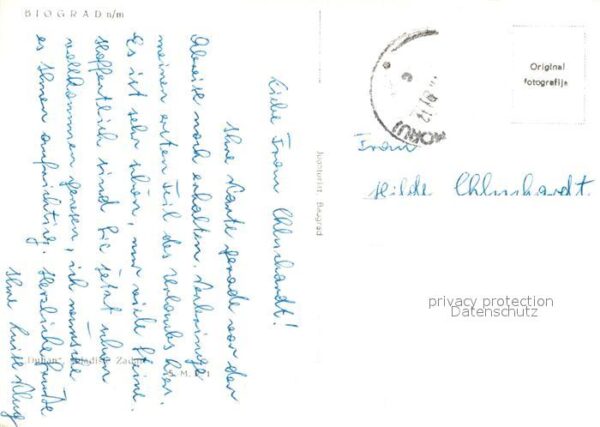 BIOGRAD n/m
Liebe Frau Ehlenhardt!
Ihre Karte gerade vor der
Abreise noch erhalten. Verbringe
meinen ersten Teil des Urlaubes hier.
Es ist sehr schön, nur viele Steine.
Hoffentlich sind Sie jetzt schon
vollkommen genesen, ich wünsche
es Ihnen aufrichtig. Herzliche Grüße
Ihre Luise Klug
"Duhan", Zadar
S. M.
Jugoturist Beograd
Original
fotografija
Frau
Hilde Ehlenhardt.
privacy protection
Datenschutz